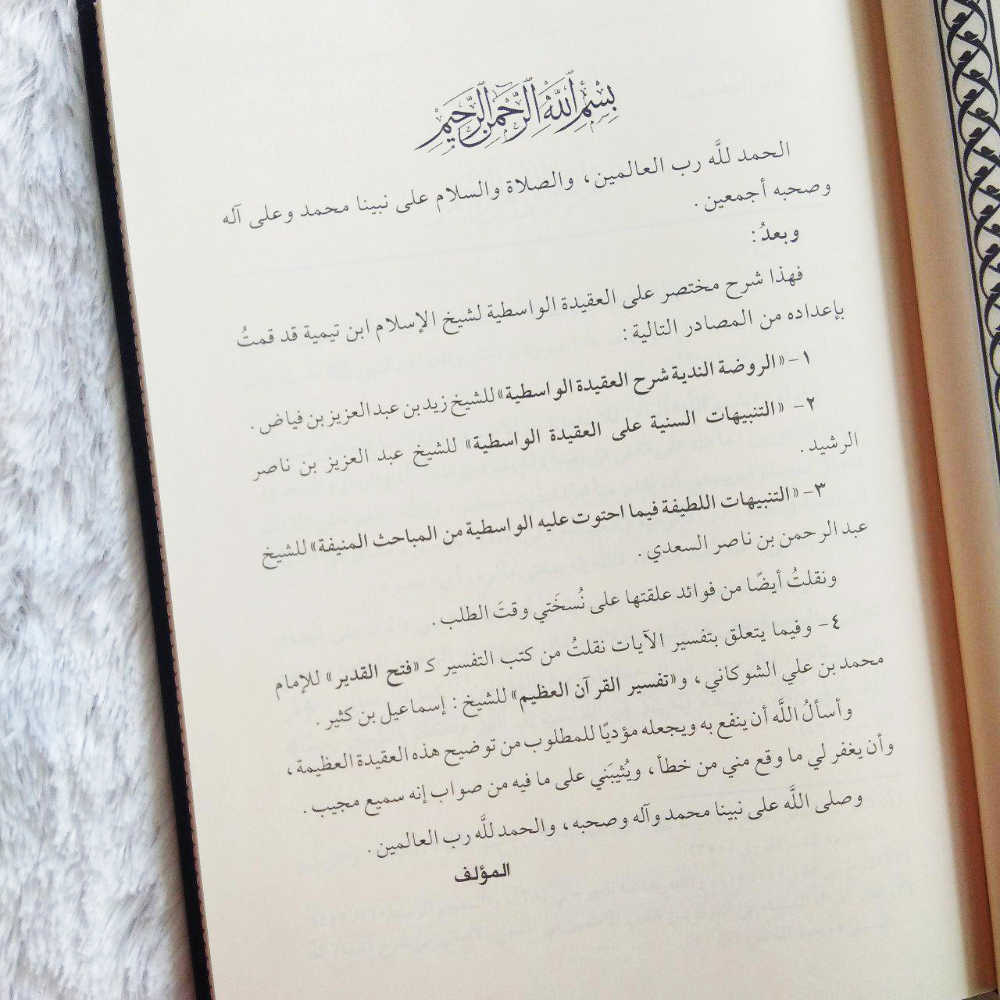 بِسْمِ ٱللَّهِ ٱلرَّحْمَٰنِ ٱلرَّحِيمِ
الحمد للَّه رب العالمين، والصلاة والسلام على نبينا محمد وعلى آله
وصحبه أجمعين.
وبعدُ:
فهذا شرح مختصر على العقيدة الواسطية لشيخ الإسلام ابن تيمية قد قمتُ
بإعداده من المصادر التالية:
١- «الروضة الندية شرح العقيدة الواسطية» للشيخ زيد بن عبد العزيز بن فياض.
٢- «التنبيهات السنية على العقيدة الواسطية» للشيخ عبد العزيز بن ناصر
الرشيد.
٣- «التنبيهات اللطيفة فيما احتوت عليه الواسطية من المباحث المنيفة» للشيخ
عبد الرحمن بن ناصر السعدي.
ونقلتُ أيضًا من فوائد علقتها على نُسخَتي وقتَ الطلب.
٤- وفيما يتعلق بتفسير الآيات نقلتُ من كتب التفسير كـ «فتح القدير» للإمام
محمد بن علي الشوكاني، و«تفسير القرآن العظيم» للشيخ: إسماعيل بن كثير.
وأسألُ اللَّه أن ينفع به ويجعله مؤديًا للمطلوب من توضيح هذه العقيدة العظيمة،
وأن يغفر لي ما وقع مني من خطأ، ويُثيبَني على ما فيه من صواب إنه سميع مجيب.
وصلى اللَّه على نبينا محمد وآله وصحبه، والحمد للَّه رب العالمين.
المؤلف